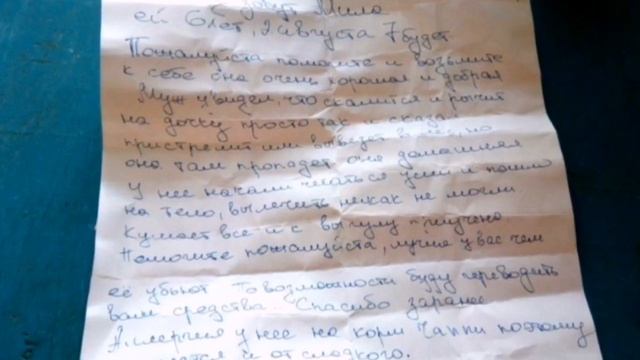 зовут Мила
ей 6 лет, 2 августа 7 будет
Пожалуйста помогите и возьмите
к себе она очень хорошая и добрая
Муж увидел, что скалится и рычит
на дочку просто так и сказал
пристрелит или вывезет в лес, но
она там пропадет она домашняя
У нее начали чесаться уши и пошло
на тело, вылечить никак не могли.
Кушает все и с выгулу приучена.
Помогите пожалуйста, лучше у вас чем
её убьют По возможности буду переводить
вам средства. Спасибо заранее
Аллергия у нее на корм Чаппи поэтому
и от сладкого.